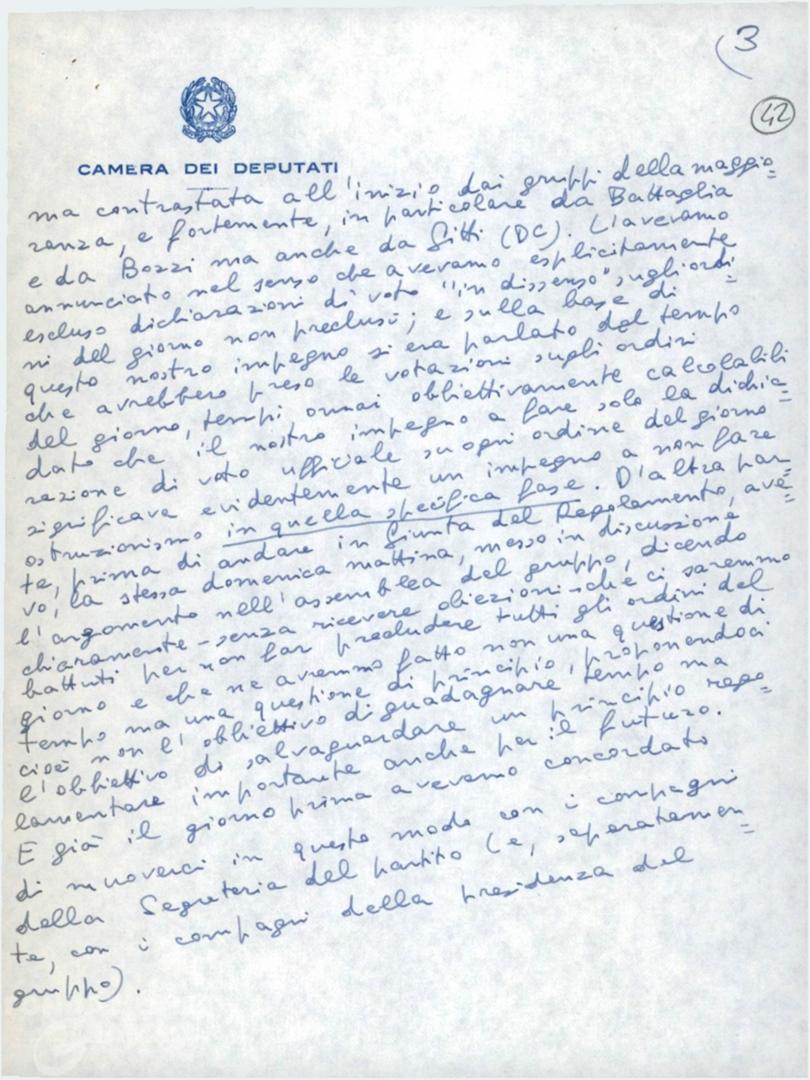 3
42
CAMERA DEI DEPUTATI
ma contrastata all'inizio dai gruppi della maggio=
ranza, e fortemente, in particolare da Battaglia
e da Bozzi ma anche da Gitti (DC). L'avevamo
annunciato nel senso che avevamo esplicitamente
escluso dichiarazioni di voto "in dissenso" sugli ordi=
ni del giorno non preclusi; e sulla base di
questo nostro impegno si era parlato del tempo
che avrebbero preso le votazioni sugli ordini
del giorno, tempi ormai obbiettivamente calcolabili
dato che il nostro impegno a fare solo la dichia=
razione di voto ufficiale su ogni ordine del giorno
significava evidentemente un impegno a non fare
ostruzionismo in quella specifica fase. D'altra par=
te, prima di andare in Giunta del Regolamento, ave=
vo, la stessa domenica mattina, messo in discussione
l'argomento nell'assemblea del gruppo, dicendo
chiaramente - senza ricevere obiezioni - che ci saremmo
battuti per non far precludere tutti gli ordini del
giorno e che ne avremmo fatto non una questione di
tempo ma una questione di principio, proponendoci
cioè non l'obbiettivo di guadagnare tempo ma
l'obbiettivo di salvaguardare un principio rego=
lamentare importante anche per il futuro.
E già il giorno prima avevamo concordato
di muoverci in questo modo con i compagni
della Segreteria del partito (e, separatamen=
te, con i compagni della presidenza del
gruppo).